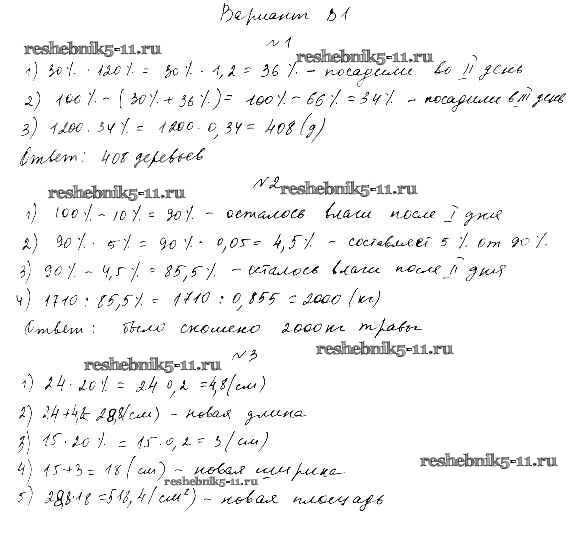 Вариант В1
№1
reshebnik5-11.ru
reshebnik5-11.ru
1) 30% · 120% = 30% · 1,2 = 36% - посадили во II день
2) 100% - (30% + 36%) = 100% - 66% = 34% - посадили в III день
3) 1200 · 34% = 1200 · 0,34 = 408 (д)
Ответ: 408 деревьев
reshebnik5-11.ru
№2
reshebnik5-11.ru
1) 100% - 10% = 90% - осталось влаги после I дня
2) 90% · 5% = 90% · 0,05 = 4,5% - составляет 5% от 90%
3) 90% - 4,5% = 85,5% - осталось влаги после II дня
4) 1710 : 85,5% = 1710 : 0,855 = 2000 (кг)
Ответ: было скошено 2000кг травы
reshebnik5-11.ru
№3
reshebnik5-11.ru
1) 24 · 20% = 24 · 0,2 = 4,8 (см)
2) 24 + 4,8 = 28,8 (см) - новая длина
3) 15 · 20% = 15 · 0,2 = 3 (см)
4) 15 + 3 = 18 (см) - новая ширина
reshebnik5-11.ru
reshebnik5-11.ru
5) 28,8 · 18 = 518,4 (см²) - новая площадь